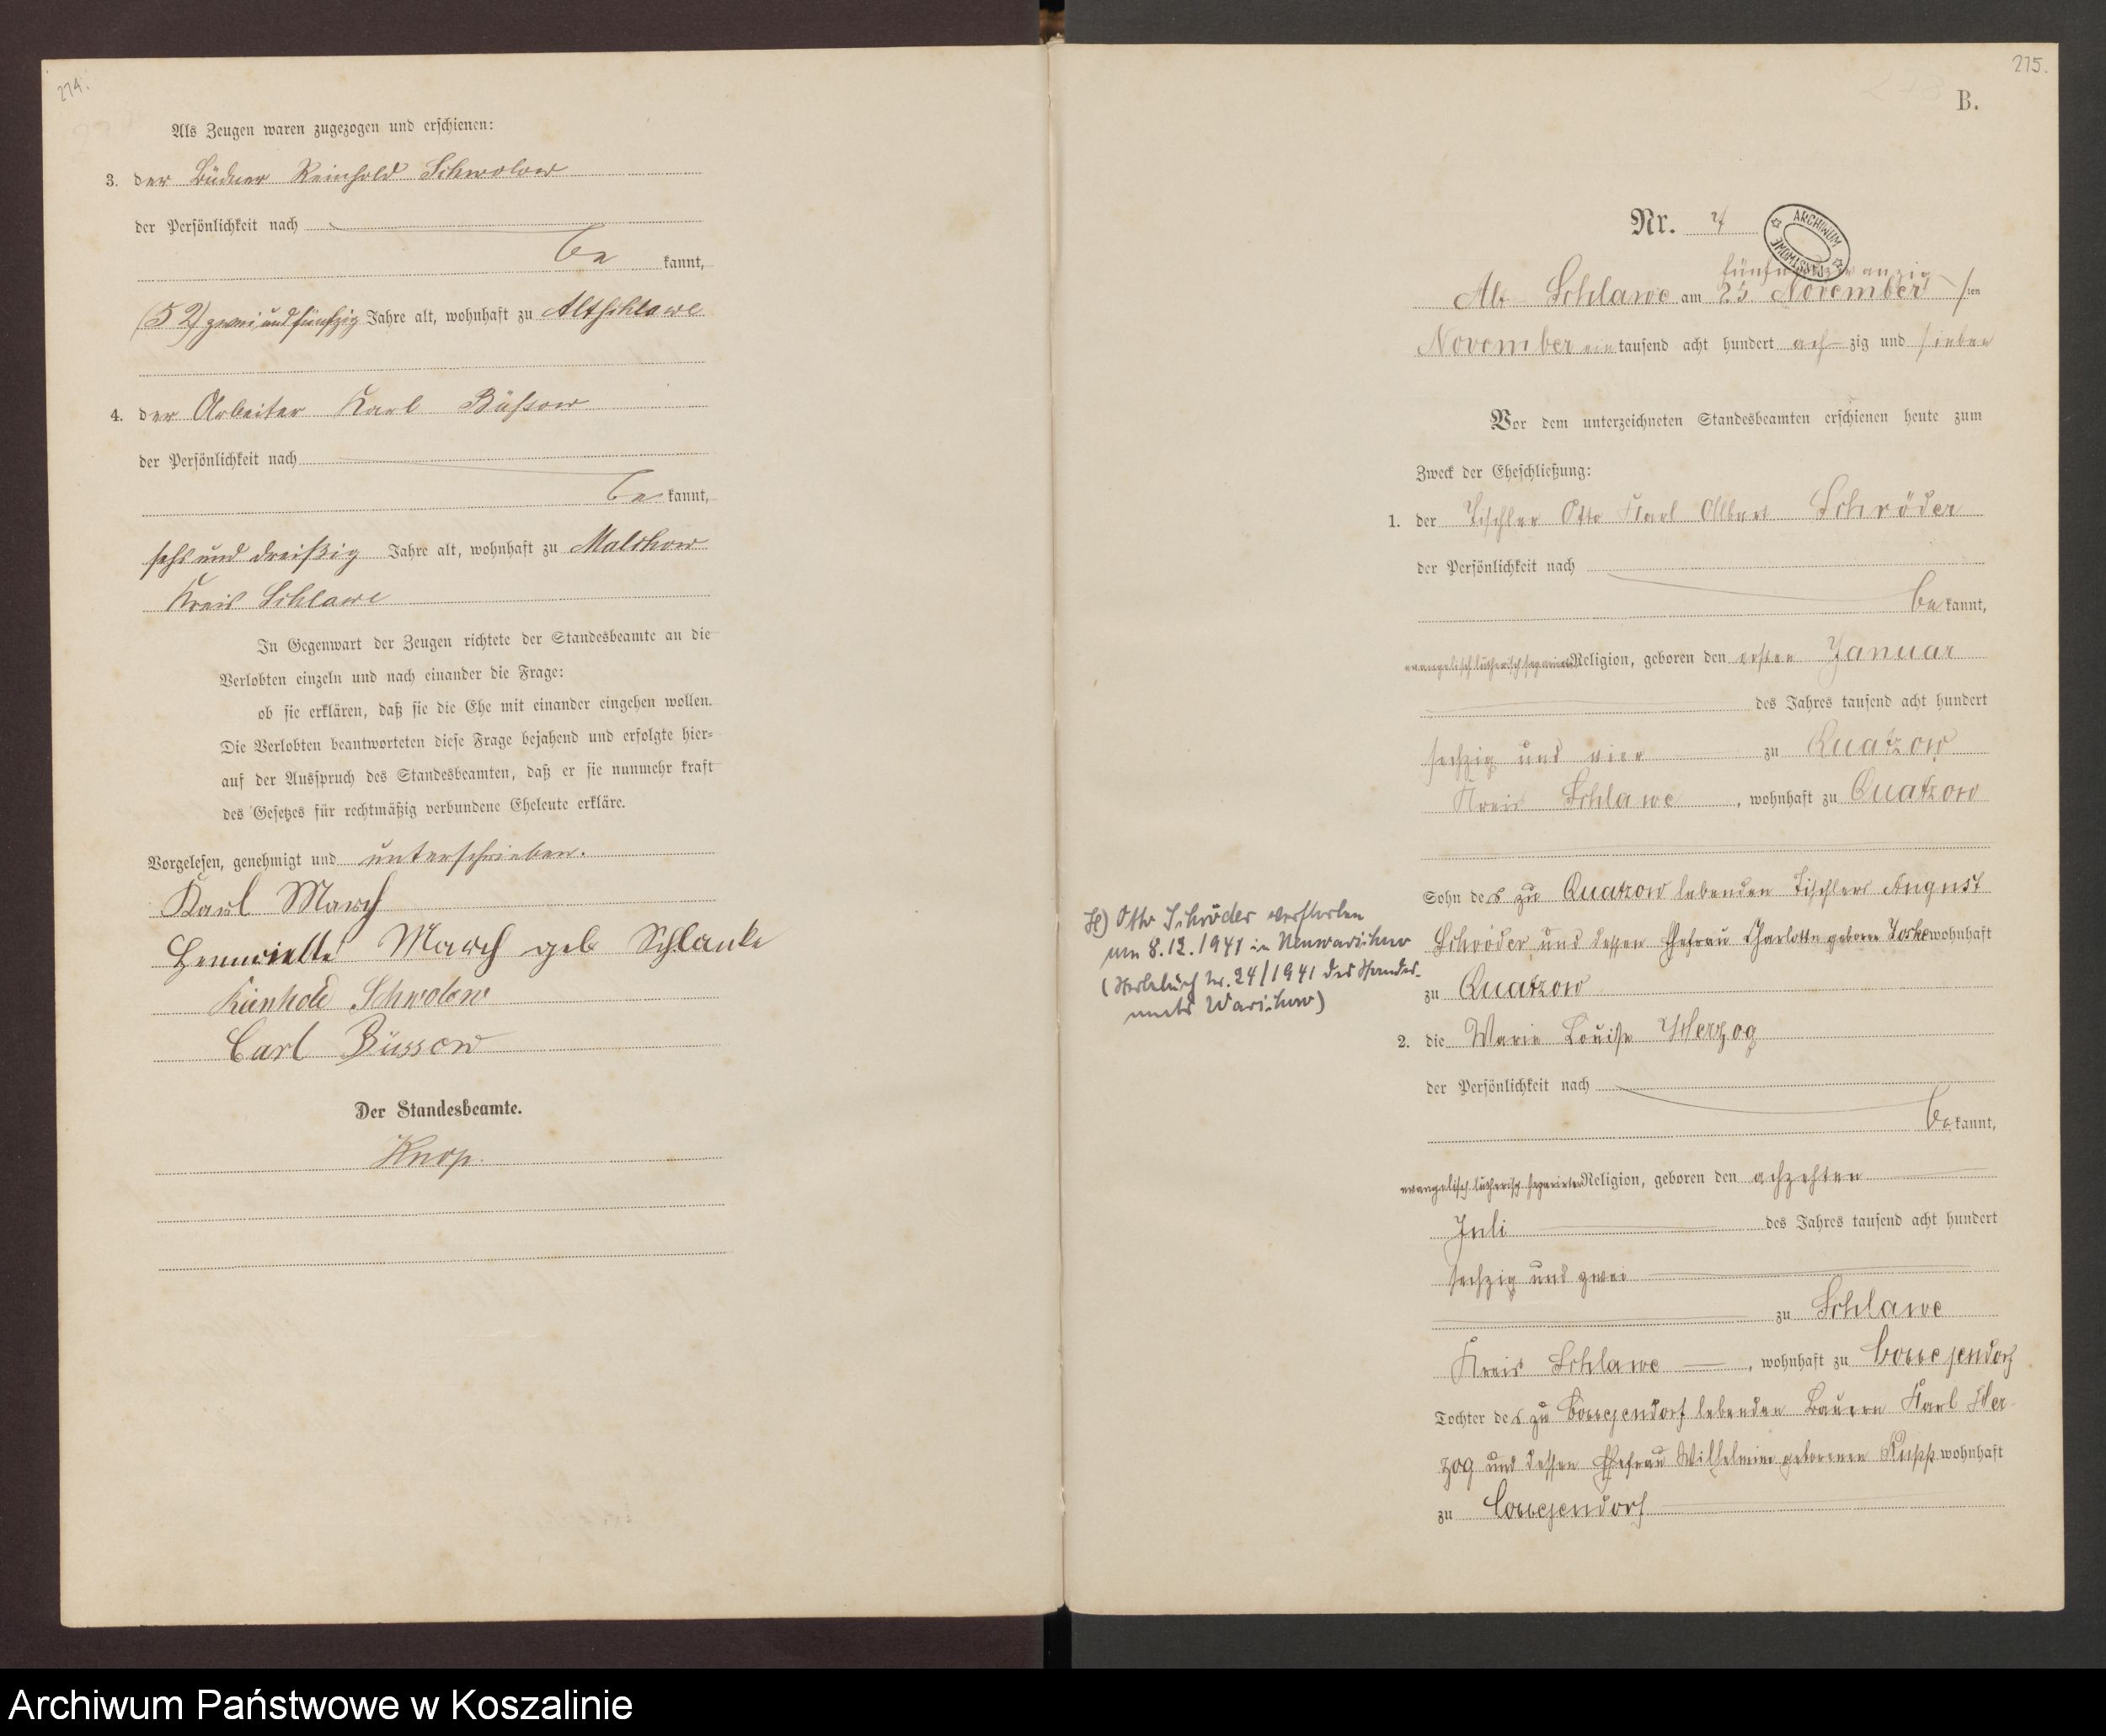 274.
Als Zeugen waren zugezogen und erschienen:
3. der Büdner Reinhold Schwolow
der Persönlichkeit nach
be kannt,
(52) zwei und fünfzig Jahre alt, wohnhaft zu Altschlawe
4. der Arbeiter Karl Büssow
der Persönlichkeit nach
be kannt,
sechs und dreißig Jahre alt, wohnhaft zu Malchow
Kreis Schlawe
In Gegenwart der Zeugen richtete der Standesbeamte an die
Verlobten einzeln und nach einander die Frage:
ob sie erklären, daß sie die Ehe mit einander eingehen wollen.
Die Verlobten beantworteten diese Frage bejahend und erfolgte hier=
auf der Ausspruch des Standesbeamten, daß er sie nunmehr kraft
des Gesetzes für rechtmäßig verbundene Eheleute erkläre.
Vorgelesen, genehmigt und unterschrieben.
Karl March
Henriette March geb Schlanke
Reinhold Schwolow
Carl Büssow
Der Standesbeamte.
Knop.
275.
B.
Nr.
ARCHIWUM
fünfundzwanzig
Alt Schlawe am 25 November ten
November ein tausend acht hundert acht zig und sieben
Vor dem unterzeichneten Standesbeamten erschienen heute zum
Zweck der Eheschließung:
1. der Tischler Otto Karl Albert Schröder
der Persönlichkeit nach
be kannt,
evangelisch lutherisch separirter Religion, geboren den ersten Januar
des Jahres tausend acht hundert
sechzig und vier zu Quatzow
Kreis Schlawe, wohnhaft zu Quatzow
Sohn des zu Quatzow lebenden Tischlers August
Schröder und dessen Ehefrau Charlotte geboren wohnhaft
zu Quatzow
2. die Marie Louise Herzog
der Persönlichkeit nach
be kannt,
evangelisch lutherisch separirter Religion, geboren den achzehten
Juli des Jahres tausend acht hundert
sechzig und zwei
zu Schlawe
Kreis Schlawe, wohnhaft zu Coccejendorf
Tochter des zu Coccejendorf lebenden Bauern Karl Her
zog und dessen Ehefrau Wilhelmine geborenen Rupp wohnhaft
zu Coccejendorf
H) Otto Schröder verstorben
am 8.12.1941 in Neuwarschow
(Sterbebuch Nr. 24/1941 des Standes-
amts Warschow)
Archiwum Państwowe w Koszalinie